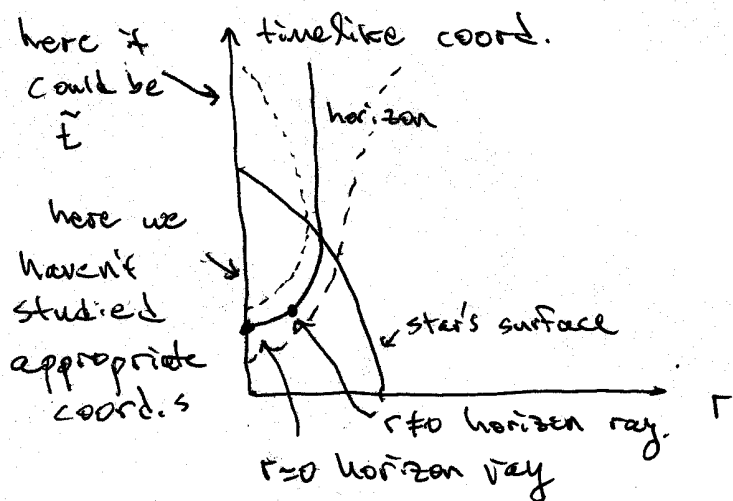 here it
could be
t̃
timelike coord.
horizon
here we
haven't
studied
appropriate
coord.s
star's surface
r
r≠0 horizon ray.
r=0 horizon ray